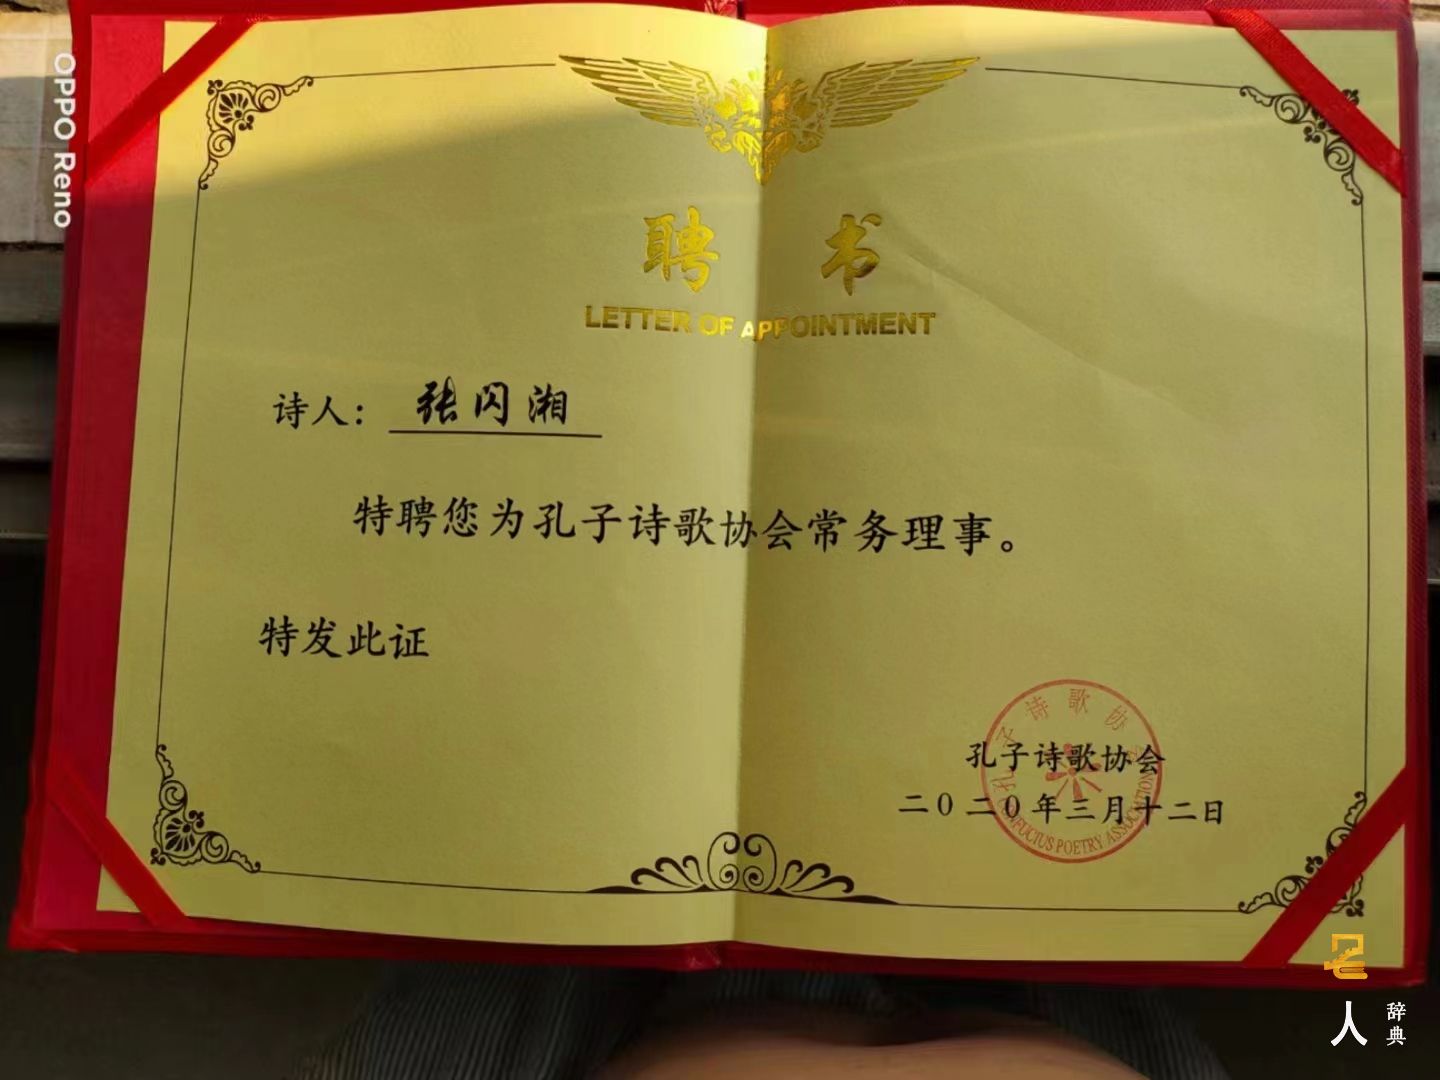 OPPO Reno
聘 书
LETTER OF APPOINTMENT
诗人: 张闪湘
特聘您为孔子诗歌协会常务理事。
特发此证
孔子诗歌协会
CONFUCIUS POETRY ASSOCIATION
孔子诗歌协会
二〇二〇年三月十二日
名人
辞典